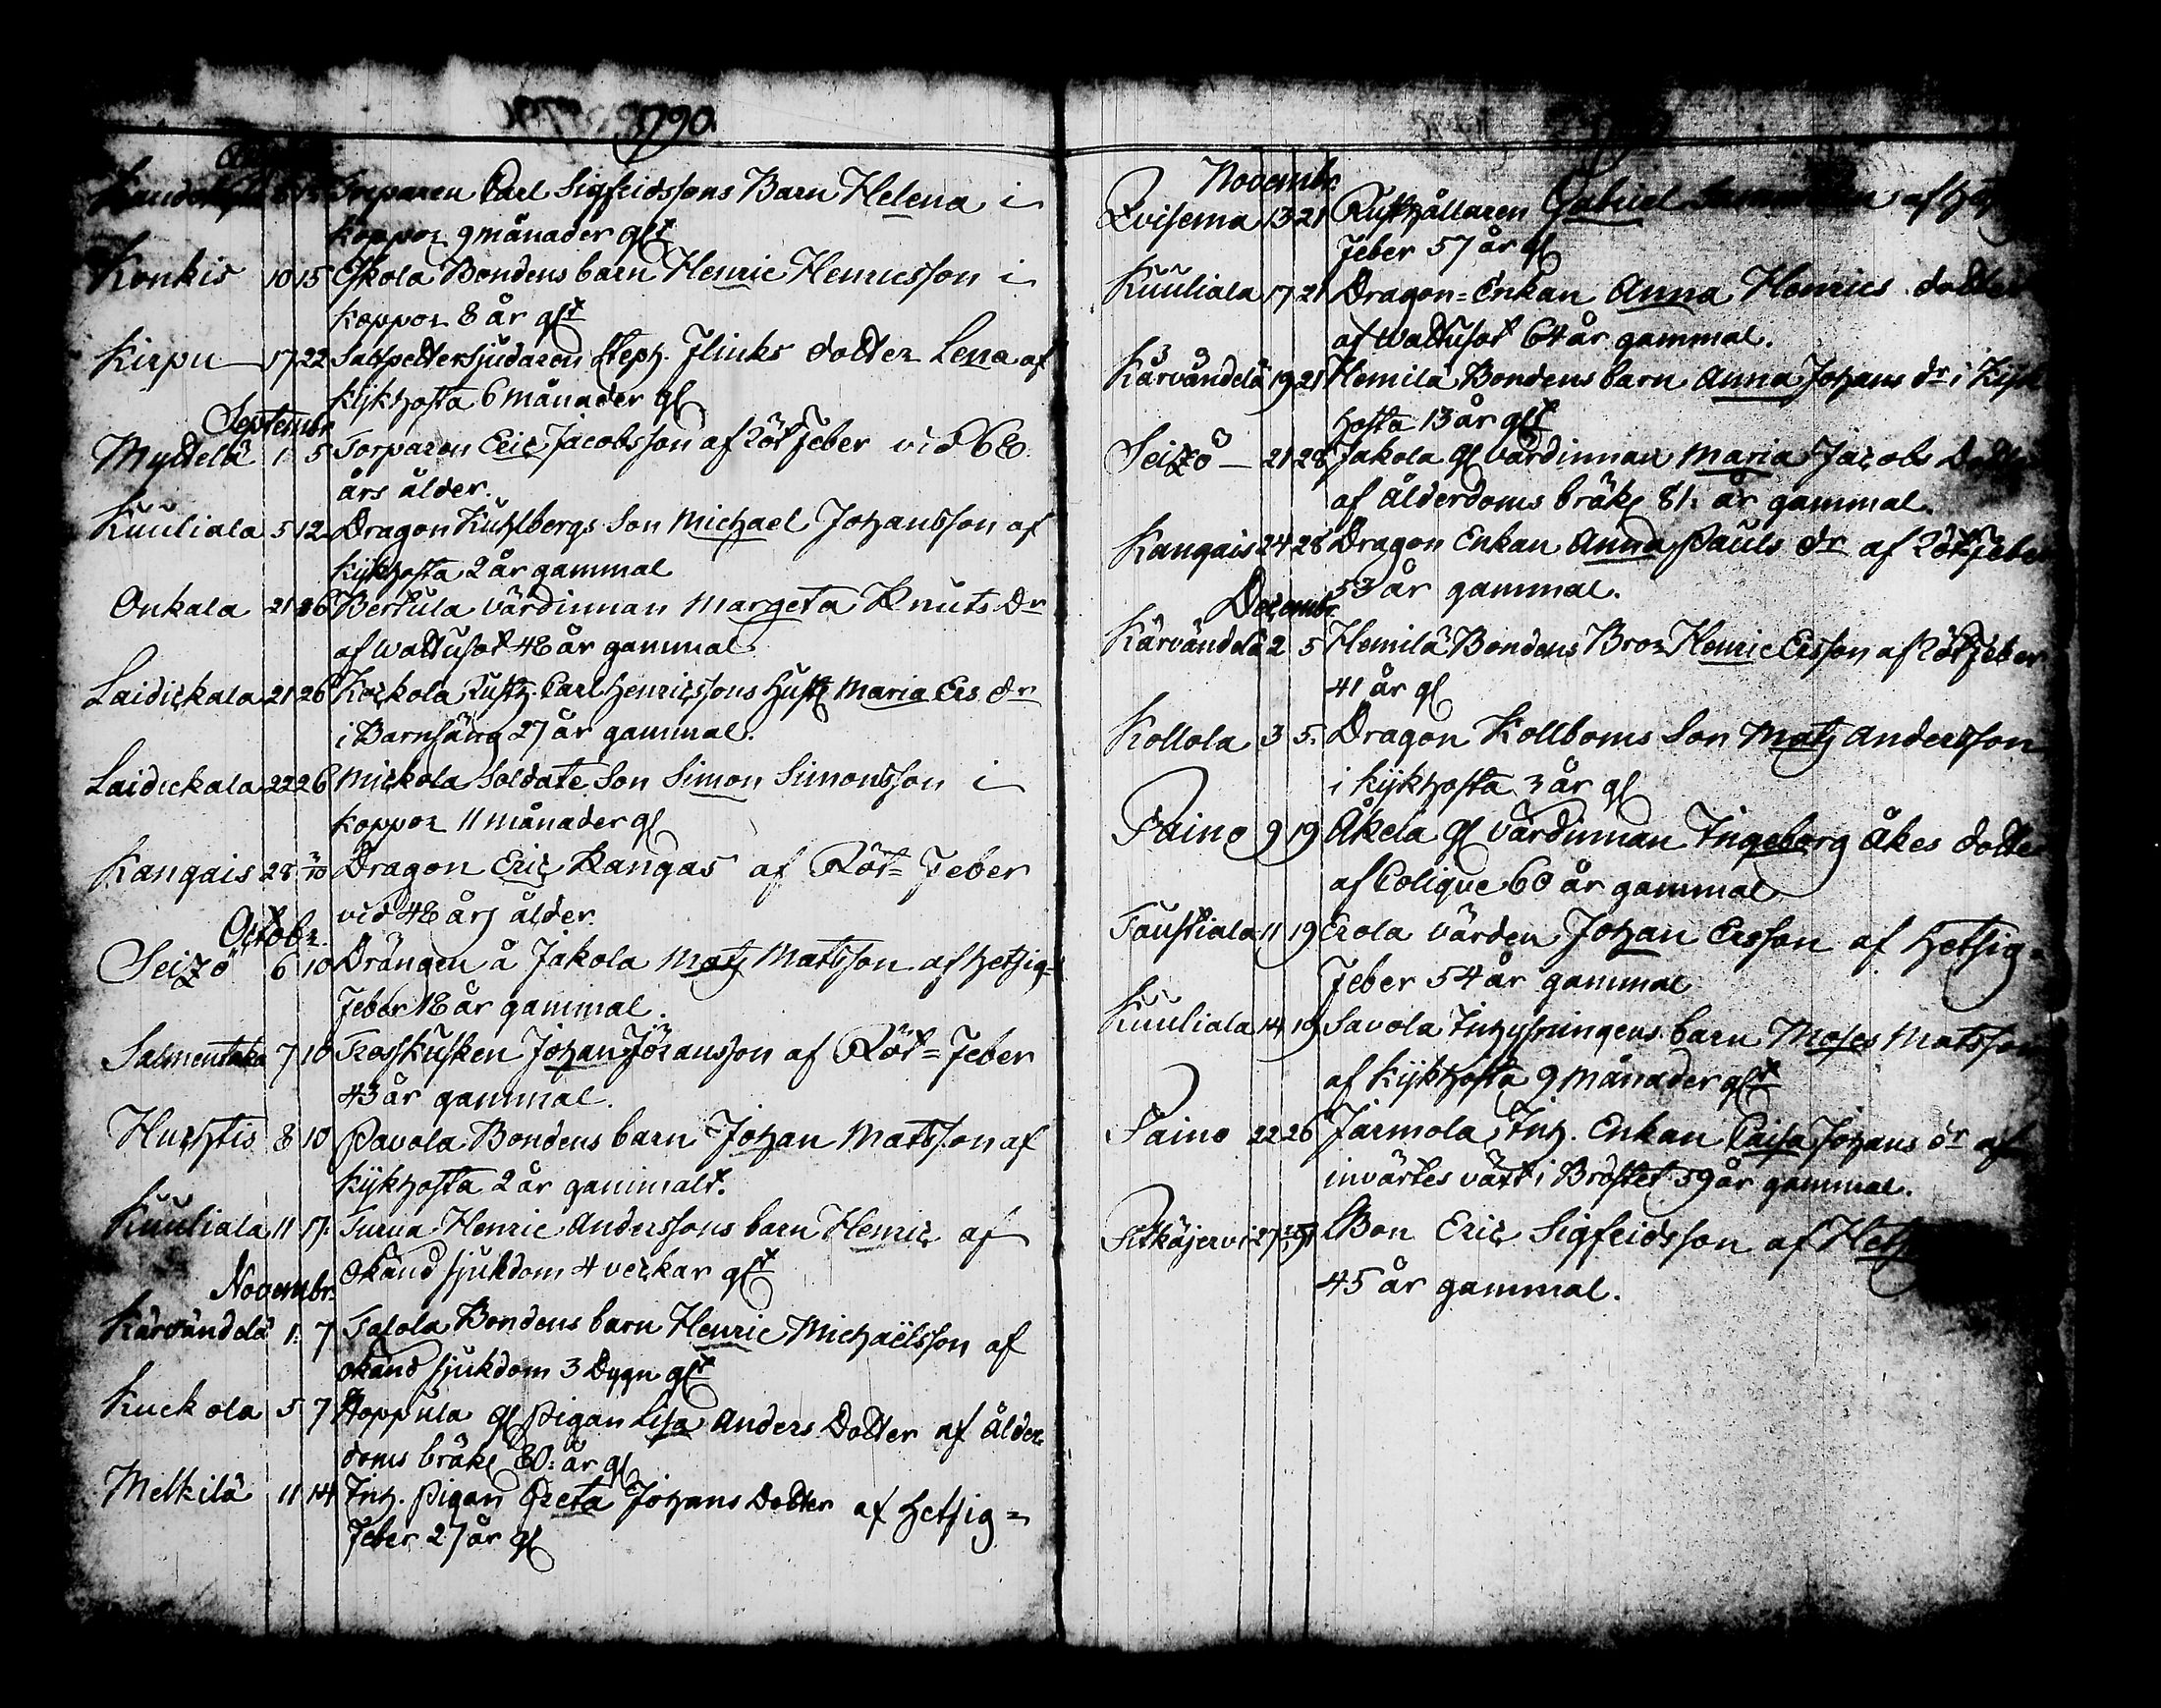 1790
Torparen Carl Sigfridssons Barn Helena i
koppor 9 månader glt
Konkis 10 15 Eskola Bondens barn Henric Henricsson i
koppor 8 år glt
Kirpu 17 22 Salpettersjudaren Steph. Flinks dotter Lena af
kijkhosta 6 månader gl
Septembr
Myttelä 1 5 Torparen Eric Jacobsson af Rötfeber vid 66
års ålder.
Kuuliala 5 12 Dragon Kuhlbergs Son Michael Johansson af
kijkhosta 2 år gammal
Onkala 21 26 Bertula värdinnan Margeta Knuts Dr
af wattusot 48 år gammal
Laidickala 21 26 Kockola Rusth. Carl Henricssons hust Maria Ers dr
i Barnsäng 27 år gammal.
Laidickala 22 26 Mickola Soldate Son Simon Simonsson i
koppor 11 månader gl
Kangais 28 Dragon Eric Kangas af Röt=Feber
vid 48 års ålder.
Octobr.
Seizö 6 10 Drängen å Jakola Matz Matsson af hetsig=
Feber 18 år gammal.
Salmentaka 7 10 Trosskusken Johan Jöransson af Röt=Feber
43 år gammal.
Huchtis 8 10 Pavola Bondens barn Johan Matsson af
kijkhosta 2 år gammalt.
Kuuliala 11 17 Turua Henric Anderssons barn Henric af
okänd sjukdom 4 veckar glt
Novembr.
Kärvändelä 1. 7 Talola Bondens barn Henric Michaëlsson af
okänd sjukdom 3 Dygn glt
Kuckola 5 7 Hoppula gl pigan Lisa Anders Dotter af ålder
doms bräkl 80: år gl
Melkilä 11 14 Inh. pigan Greta Johans Dotter af hetsig=
Feber 27 år gl
Novembr.
13 21 Rusthållaren Gabriel af
Feber 57 år gl
Kuuliala 17 21 Dragon=Enkan Anna Henrics dotter
af wattusot 64 år gammal.
Kärvändelä 19 21 Hemilä Bondens barn Anna Johans dr i Kijk
hosta 13 år glt
Seizö 21 28 Jakola gl värdinnan Maria Jacobs Dotter
af ålderdoms bräkl 81. år gammal.
Kangais 24 28 Dragon Enkan Anna Pauls dr af Rötfeber
53 år gammal.
Decembr.
Kärvändelä 2 5 Hemilä Bondens Bror Henric Ersson af Rötfeber
41 år gl
Kollola 3 5. Dragon Kollboms Son Matz Andersson
i kijkhosta 3 år gl
Paino 9 19 Åkela gl värdinnan Ingeborg Åkes dotter
af Colique 60 år gammal
Taustiala 11 19 Erola värden Johan Ersson af hetsig=
Feber 54 år gammal
Kuuliala 14 19 Savola Inhysningens barn Moses Matsson
af kijkhosta 9 månader glt
Paino 22 26 Jarmola Inh. Enkan Caisa Johans dr af
invärtes växt i Bröstet 59 år gammal.
Pitkäjervi 27 Bon Eric Sigfridsson af
45 år gammal.